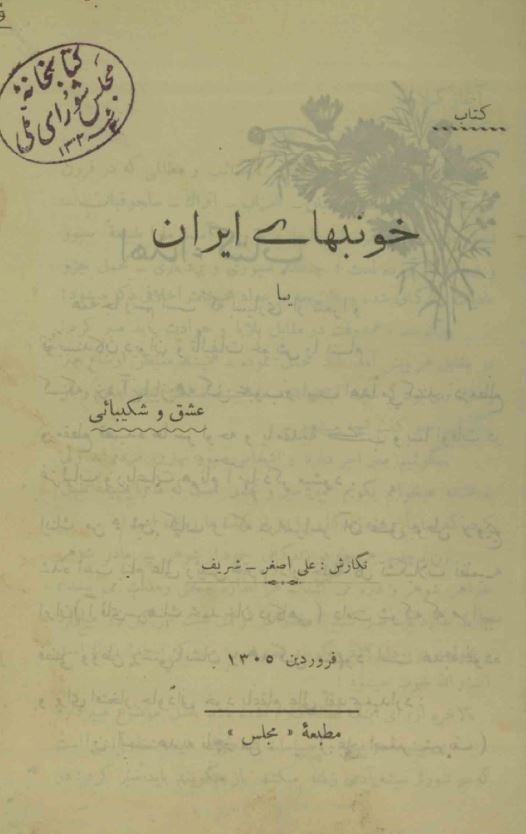 کتابخانهٔ
مجلس شورای ملی
کتاب
خونبهای ایران
یا
عشق و شکیبائی
نگارش : علی اصغر ـ شریف
فروردین ۱۳۰۵
مطبعهٔ « مجلس »